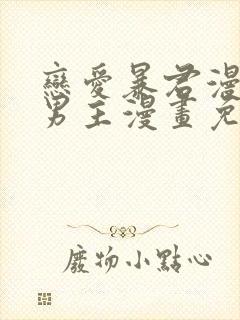 戀愛暴君漫
男主漫畫免
廢物小點心